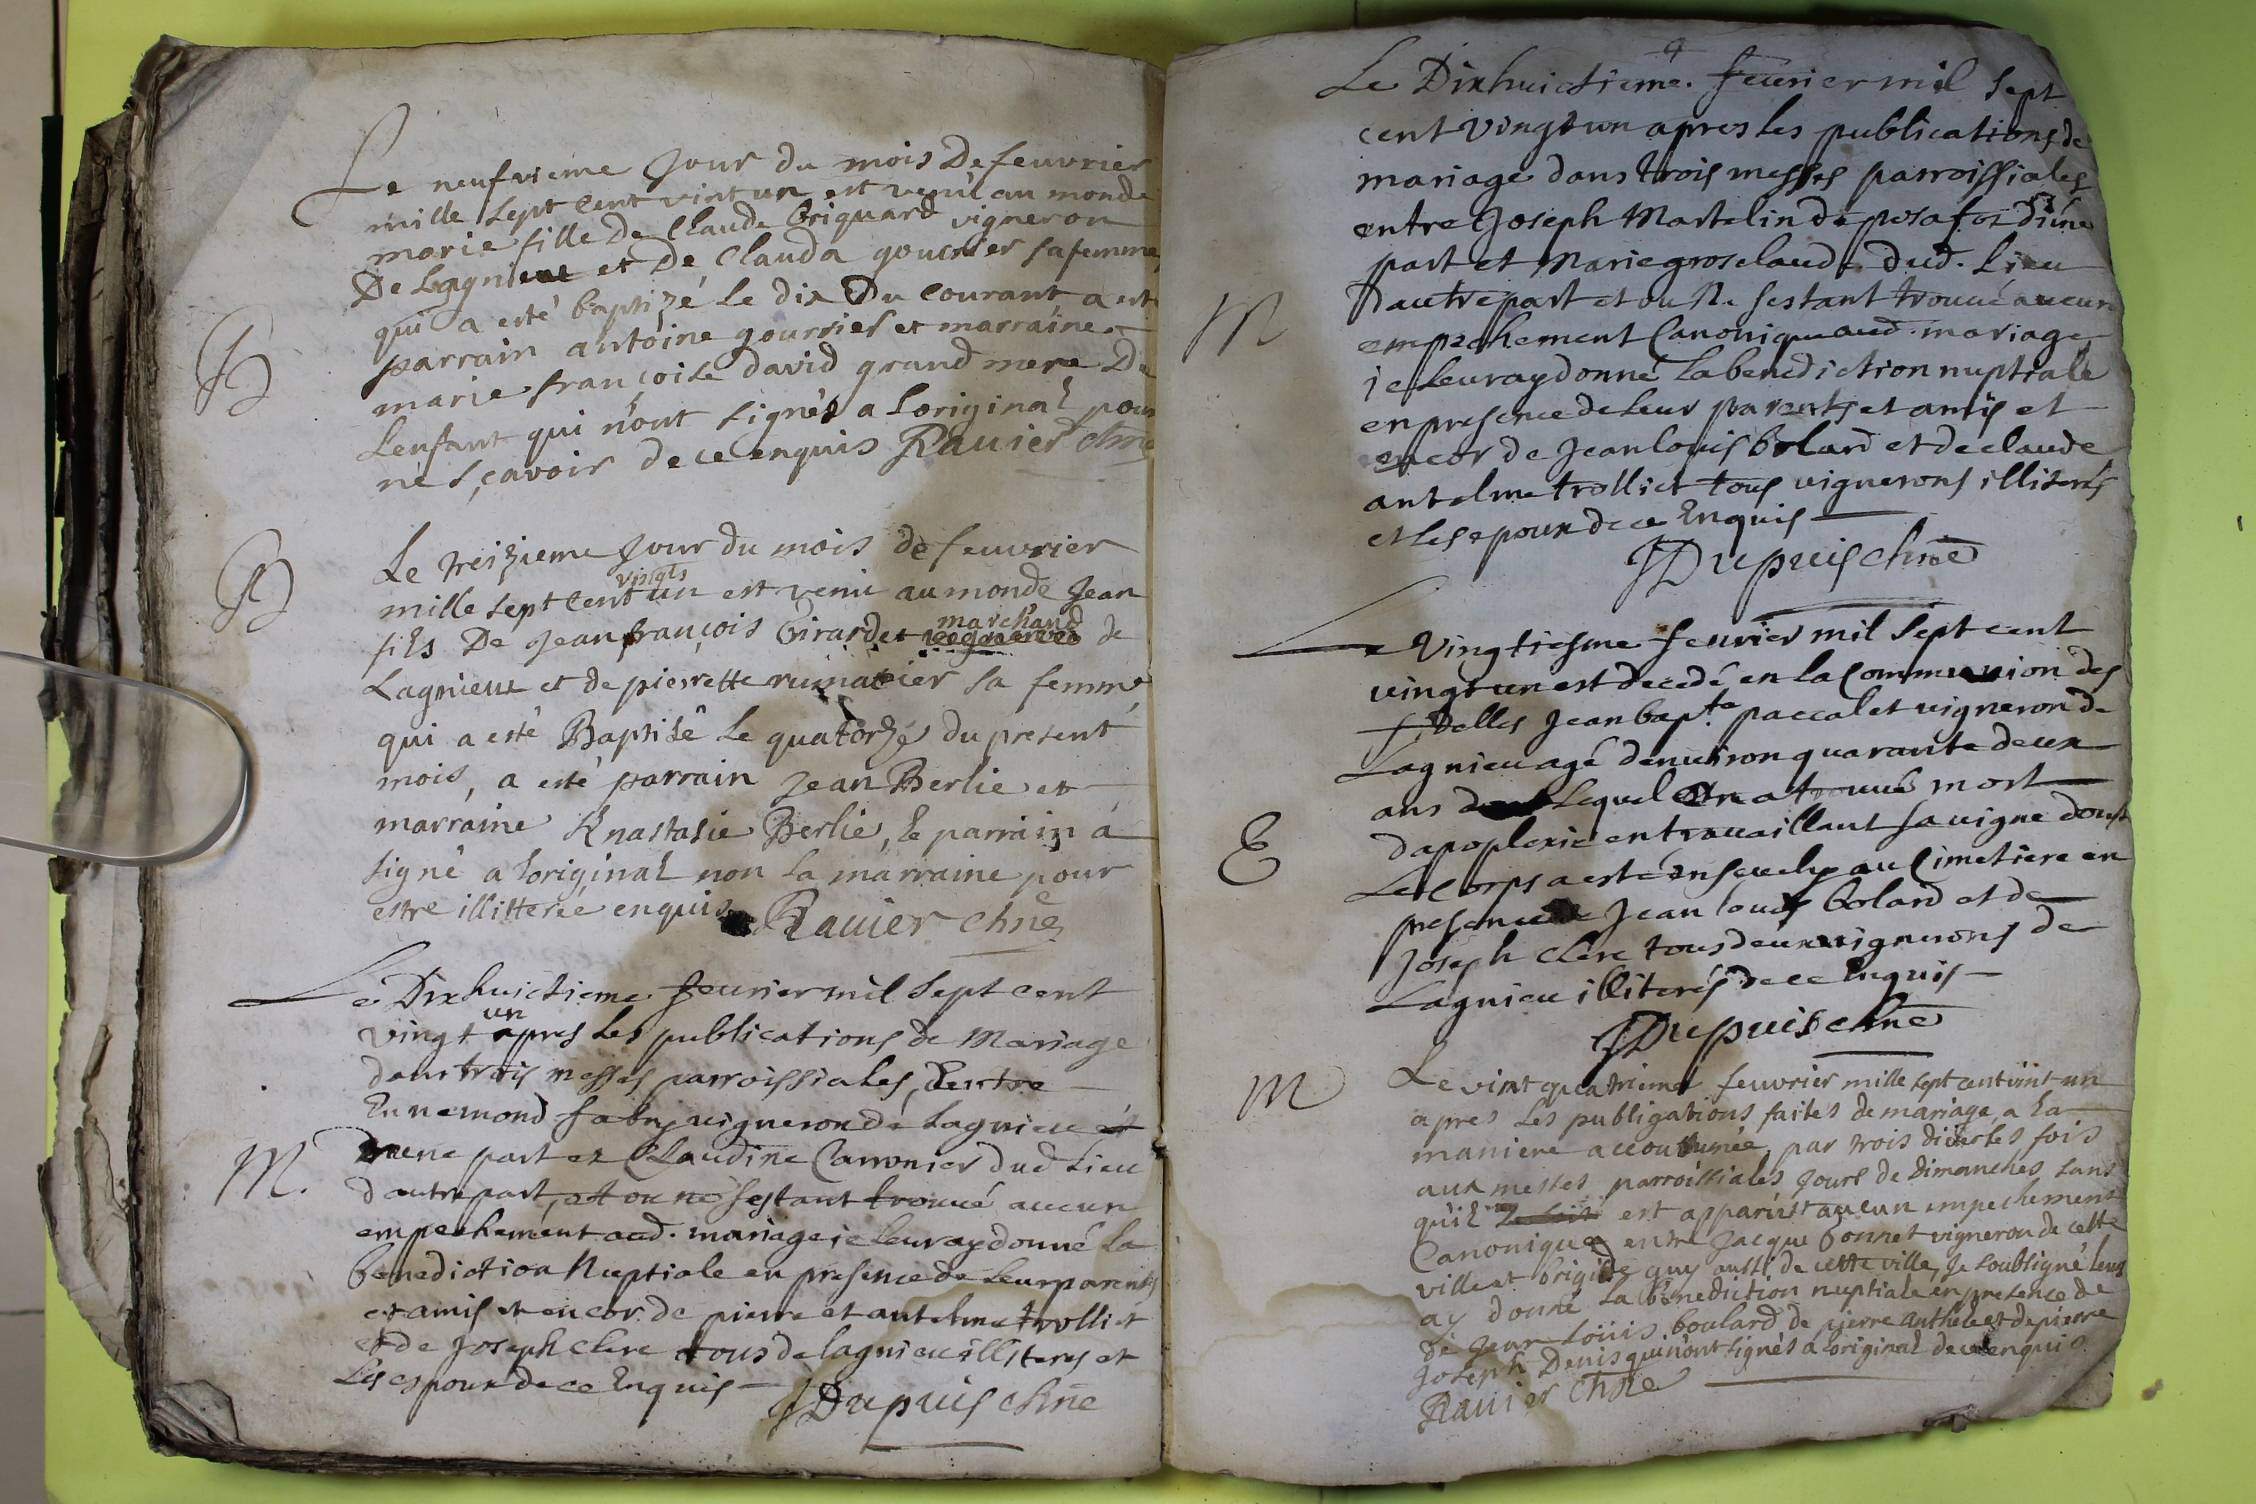 Le neufvieme Jour du mois De feuvrier
mille sept cent vint un est venu au monde
marie fille De Claude briquard vigneron
De Lagnieu et De Clauda gourrier sa femme
qui a esté baptizé Le dix Du Courant a esté
B
parrain antoine gourrier et marraine
marie françoise david grand mere De
Lenfant qui n'ont signés a Loriginal pour
ne sçavoir de ce enquis Ravier chne
Le treizieme Jour du mois de feuvrier
vingts
B
mille sept cent un est venu au monde Jean
marchand
fils De Jean françois Girardet de
Lagnieu et de pierrette rumatier sa femme
qui a esté Baptisé Le quatorze du present
mois, a esté parrain Jean Berlie et
marraine Anastasie Berlie, le parrain a
signé a Loriginal non La marraine pour
estre illitterée enquis Ravier chne
Le Dixhuictieme feurier mil sept cent
un
vingt apres Les publications de Mariage
dans trois messes parroissiales, Entre
Ennemond fabry vigneron de Lagnieu et
M.
dune part et Claudine Carronier dud Lieu
dautre part, et ou ne sestant trouvé aucun
empechement aud. mariage ie leur ay donné la
benediction Nuptiale en presence de Leurs parents
et amis et encor de pierre et antelme trolliet
et de Joseph Clerc tous de lagnieu illiterés et
Les espoux de ce Enquis
JDupuis chne
4
Le Dixhuictieme. feurier mil sept
cent vingt un apres les publications de
mariage dans trois messes parroissiales
entre Joseph Martelin de posafoz dune
part et Marie grosclaude dud. Lieu
M
Dautre part et ou N. sestant trouvé aucun
empechement Canonique aud. mariage
ie Leur ay donné La benediction nuptiale
en presence de Leur parents et amis et
encor de Jean louis bolard et de claude
antelme trolliet tous vignerons illiterés
et les epoux de ce Enquis
JDupuis chne
Le vingtiesme feurier mil sept cent
vingt un est decedé en la Communion des
fidelles Jean bapte paccalet vigneron de
Lagnieu agé denviron quarante deux
ans Lequel On a trouvé mort
E
dapoplexie en travaillant sa vigne dont
Le Corps a esté ensevely au Cimetiere en
presence de Jean louis bolard et de
Joseph Clerc tous deux vignerons de
Lagnieu illiterés de ce Enquis
JDupuis chne
M
Le vint quatrieme feuvrier mille sept cent vint un
apres Les publigations faites de mariage a La
maniere accoutumée, par trois diverses fois
aux messes parroissiales Jours de Dimanches sans
qu'il est apparust aucun empechement
Canonique entre Jacque bonnet vigneron de cette
ville et brigide guy aussi de cette ville, Je soubsigné leurs
ay donné La benediction nuptiale en presence de
de Jean Loüis boulard de pierre anthelme et de pierre
Joseph Denis qui n'ont signés a Loriginal de ce enquis
Ravier chne